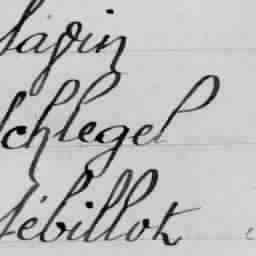 Sapin
Schlegel
Sébillot